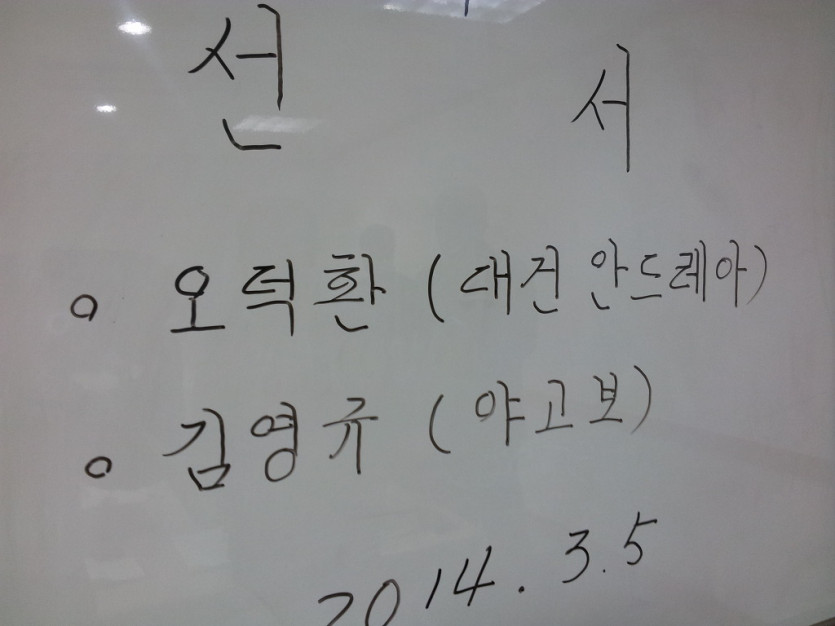 선 서
o 오덕환 (대건 안드레아)
o 김영규 (야고보)
2014. 3.5